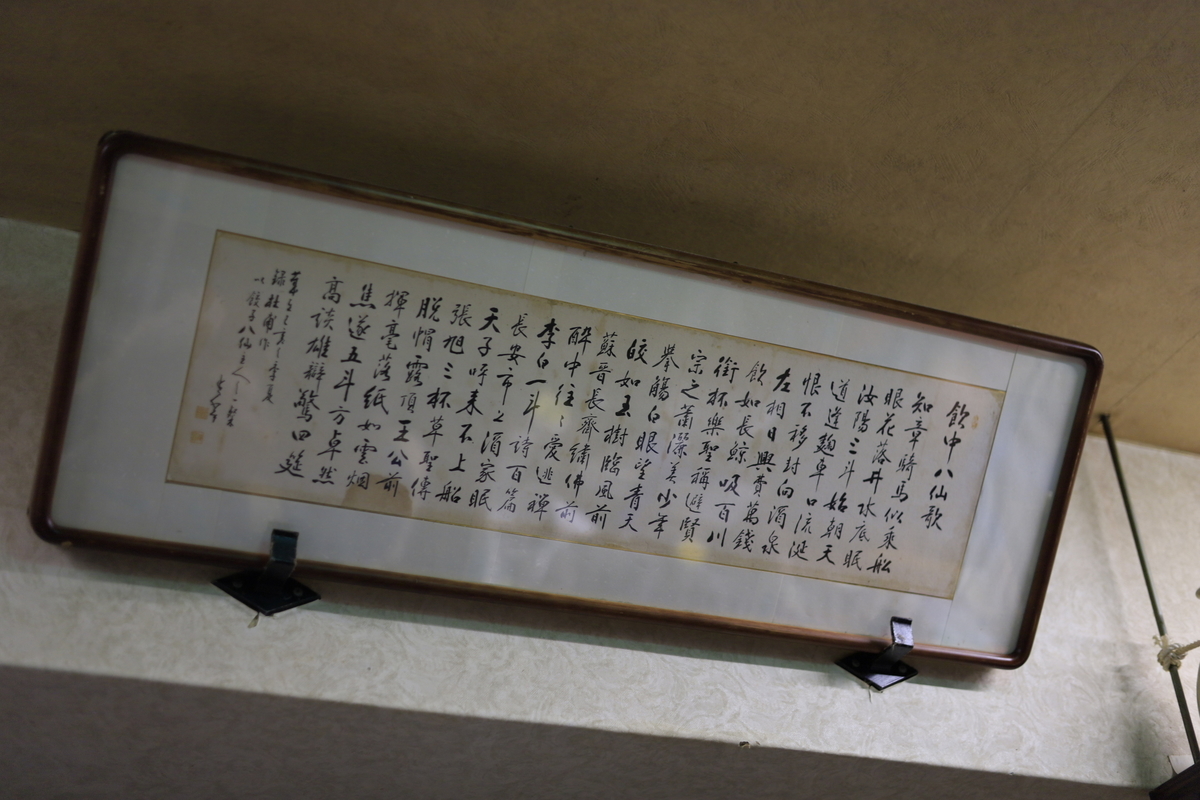 飲中八仙歌
知章騎馬似乘船
眼花落井水底眠
汝陽三斗始朝天
道逢麴車口流涎
恨不移封向酒泉
左相日興費萬錢
飲如長鯨吸百川
銜杯樂聖稱避賢
宗之蕭灑美少年
舉觴白眼望青天
皎如玉樹臨風前
蘇晉長齋繡佛前
醉中往々愛逃禪
李白一斗詩百篇
長安市上酒家眠
天子呼來不上船
張旭三杯草聖傳
脫帽露頂王公前
揮毫落紙如雲烟
焦遂五斗方卓然
高談雄辯驚四筵
季夏
錄杜甫作
以餃子八仙主人